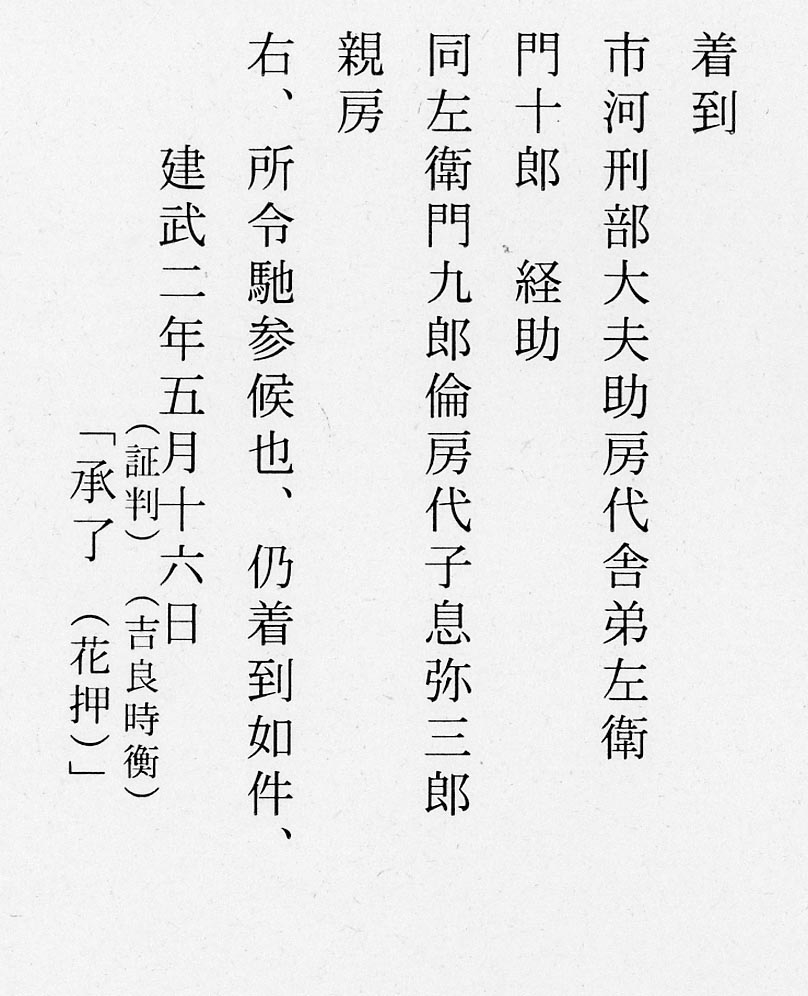 着到
市河刑部大夫助房代舎弟左衛
門十郎　経助
同左衛門九郎倫房代子息弥三郎
親房
右、所令馳参候也、仍着到如件、
建武二年五月十六日
（証判）（吉良時衡）
「承了　（花押）」